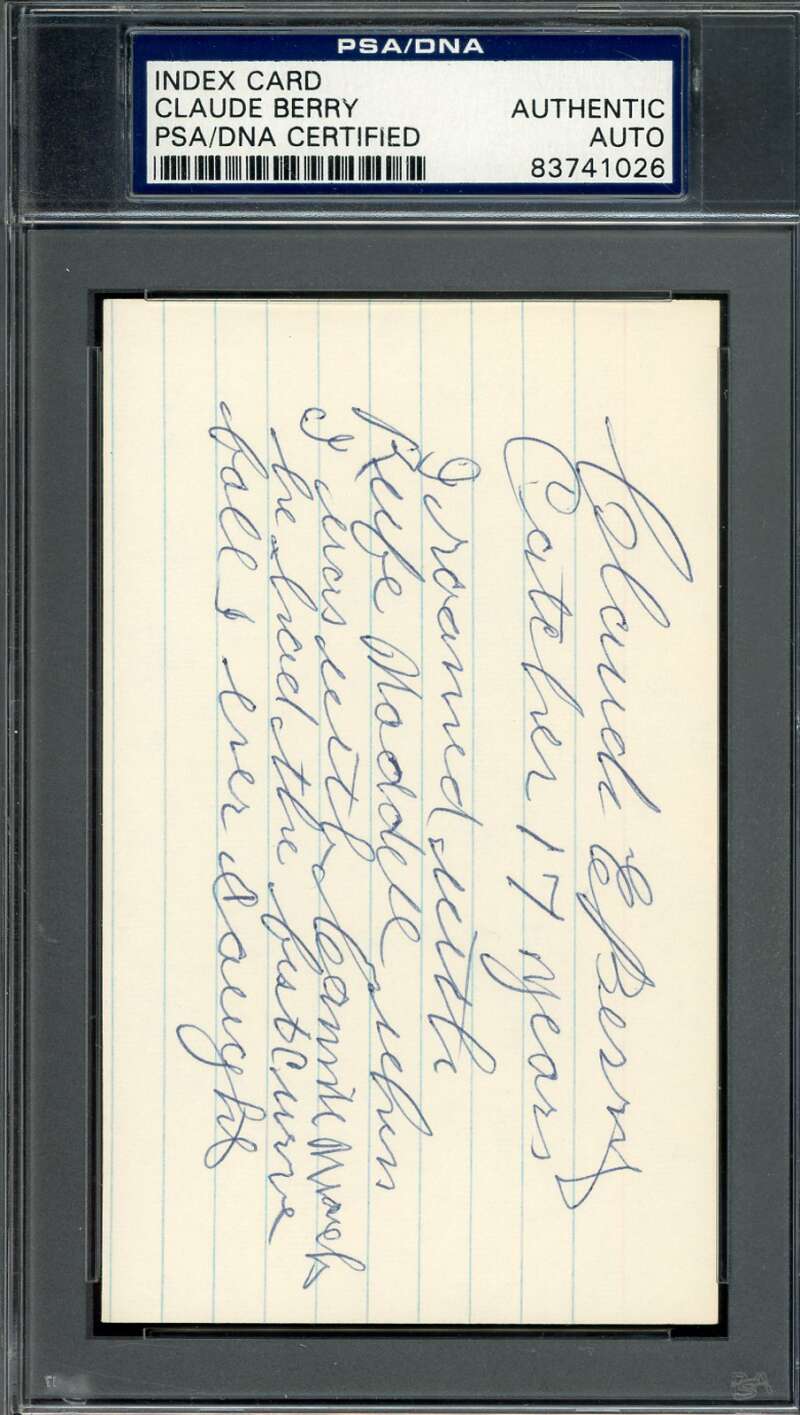 PSA/DNA
INDEX CARD
CLAUDE BERRY
PSA/DNA CERTIFIED
AUTHENTIC
AUTO
83741026
Claud E Berry
Catcher 17 years
I roamed with
Rube Waddell when
I was with Connie Mack
he had the best curve
ball I ever Caught